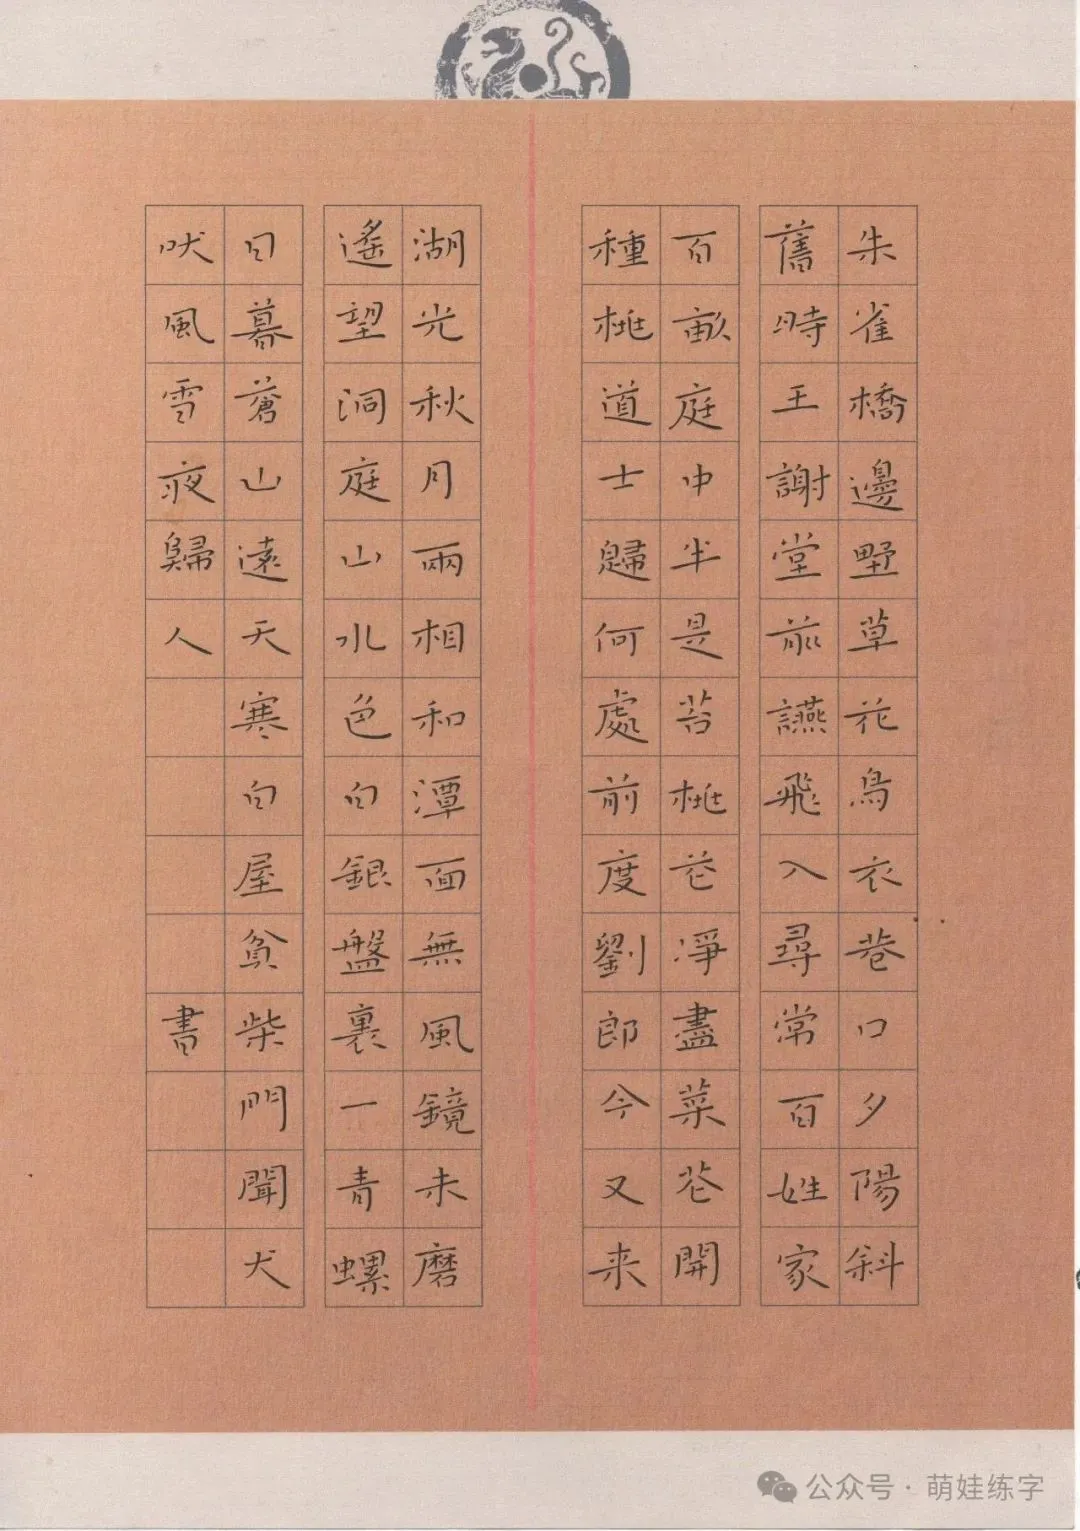 朱雀橋邊野草花鳥衣巷口夕陽斜
舊時王謝堂前讌飛入尋常百姓家
百畝庭中半是苔桃花淨盡菜花開
種桃道士歸何處前度劉郎今又来
湖光秋月兩相和潭面無風鏡未磨
遙望洞庭山水色白銀盤裏一青螺
日暮蒼山遠天寒白屋貧柴門聞犬
吠風雪夜歸人書
公众号·萌娃练字